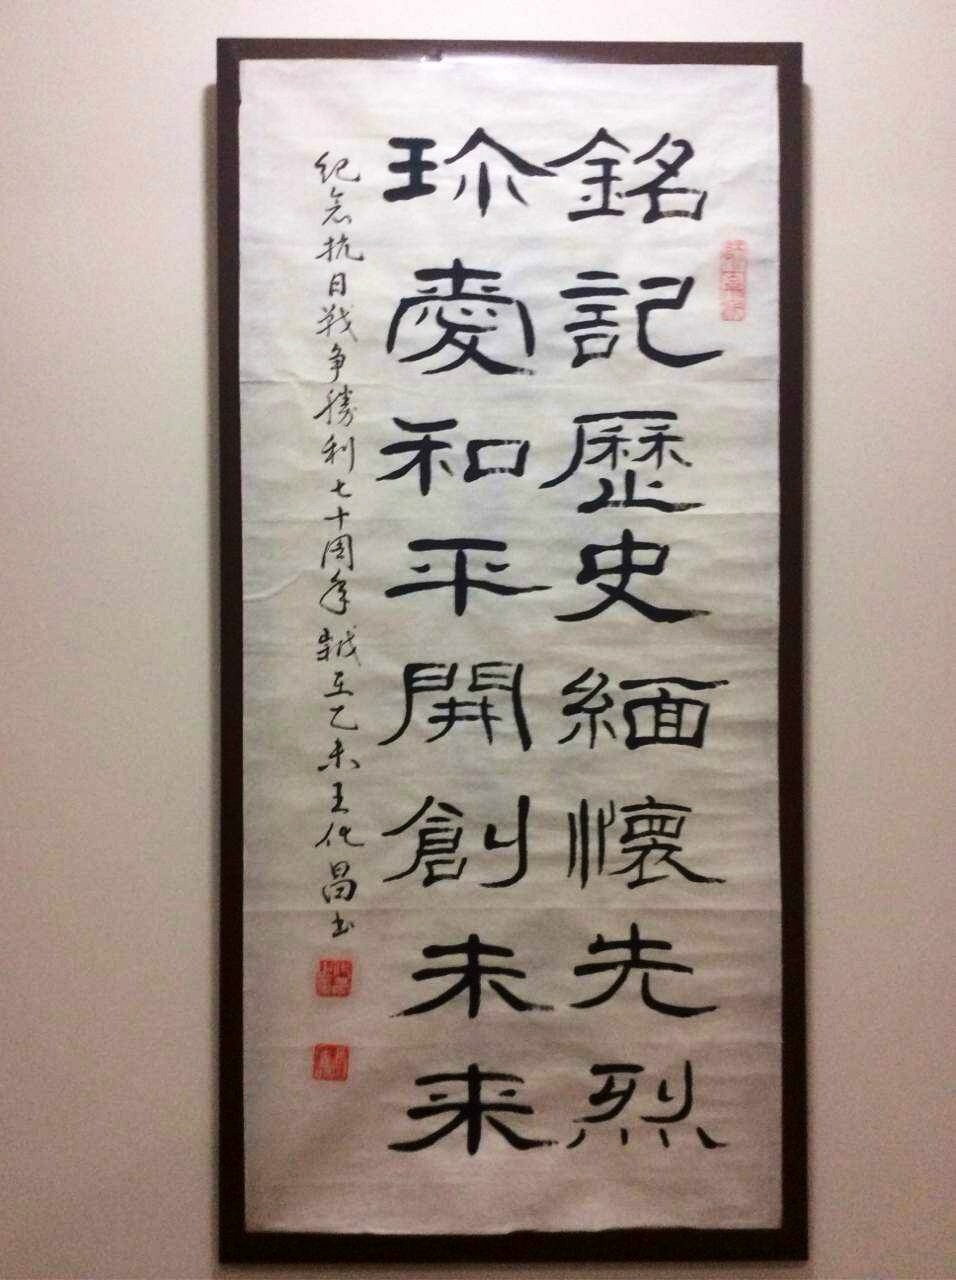 銘記歷史緬懷先烈
珎愛和平開創未来
纪念抗日戰争勝利七十周年歲在乙未王化昌书